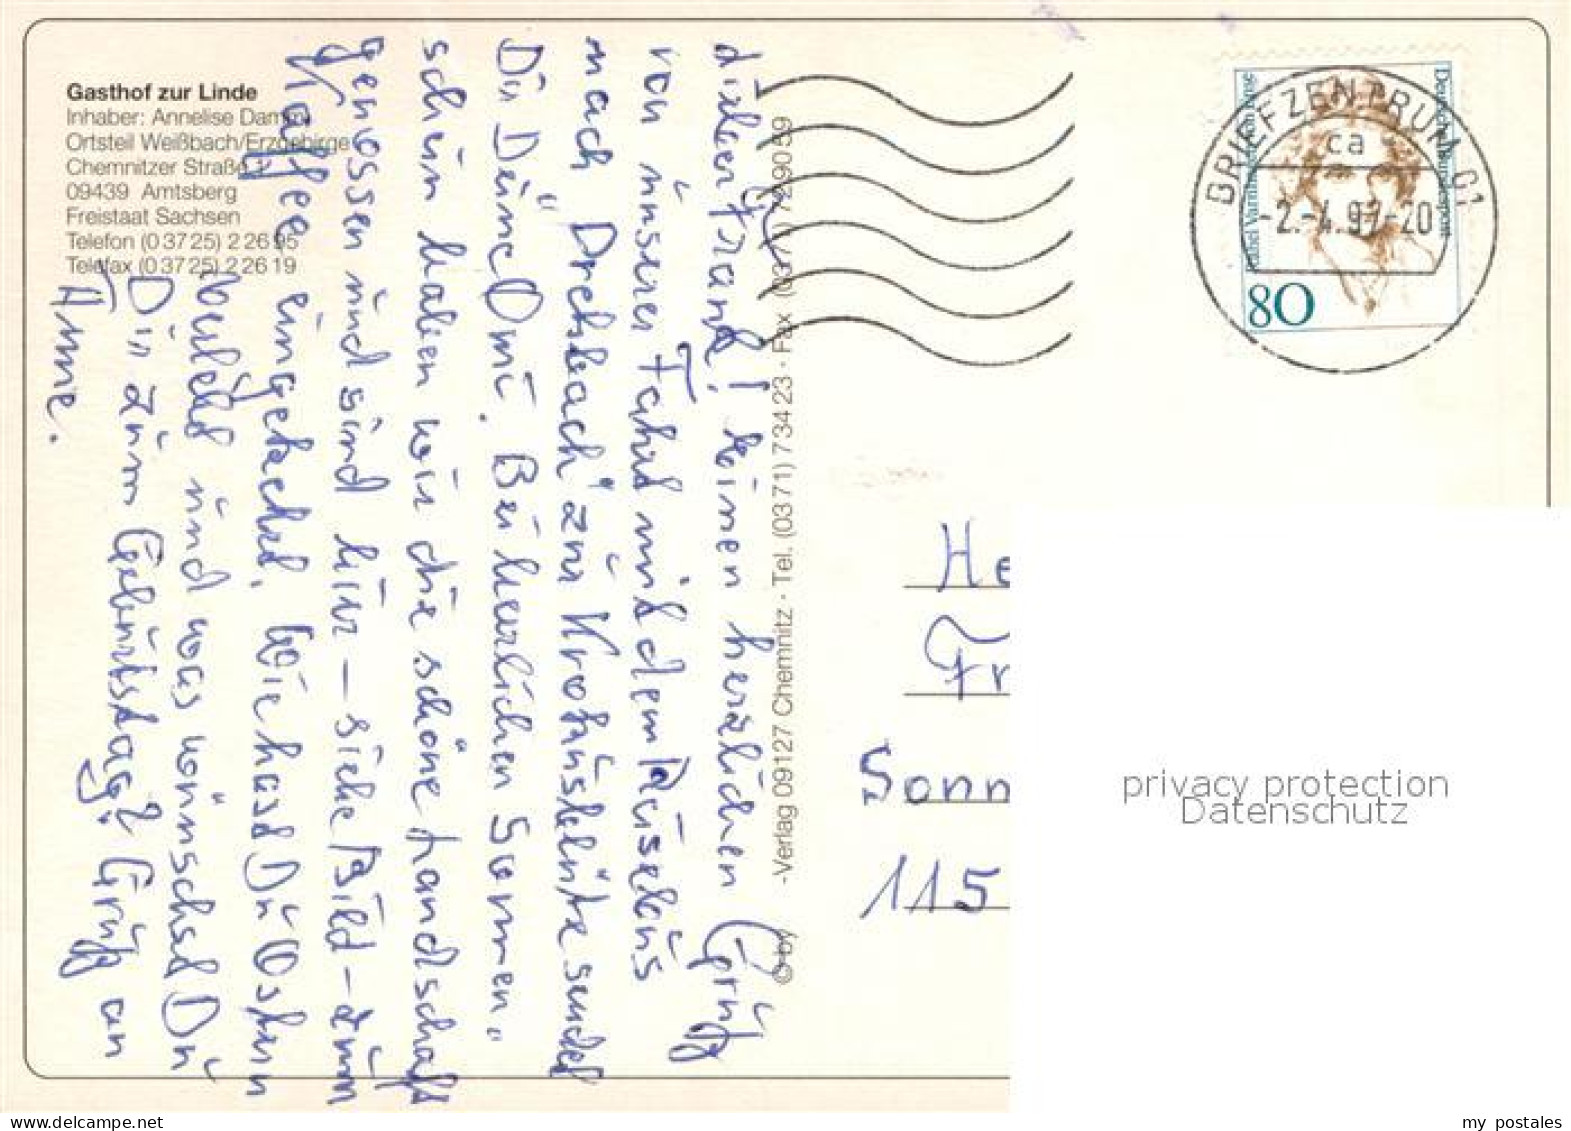 Gasthof zur Linde
Inhaber: Annelise Damm
Ortsteil Weißbach/Erzgebirge
Chemnitzer Straße 1
09439 Amtsberg
Freistaat Sachsen
Telefon (0 37 25) 2 26 95
Telefax (0 37 25) 2 26 19
Lieber Frank! Einen herzlichen Gruß
von unserer Fahrt mit dem
nach Drehbach zur Krokusblüte sendet
Dir Deine Omi. Bei herrlichen Sonnen-
schein haben wir die schöne Landschaft
genossen und sind hier - siehe Bild - zum
Kaffee eingekehrt. Wie hast Du Ostern
verlebt und was wünschst Du
Dir zum Geburtstag? Gruß an
Anne.
© by -Verlag 09127 Chemnitz · Tel. (0371) 7 34 23 · Fax (0371) 7 29 0 59
Deutsche Bundespost
80
BRIEFZENTRUM
ca
-2.-4.97-20
He
Fr
Sonn
115
privacy protection
Datenschutz
www.delcampe.net
my_postales